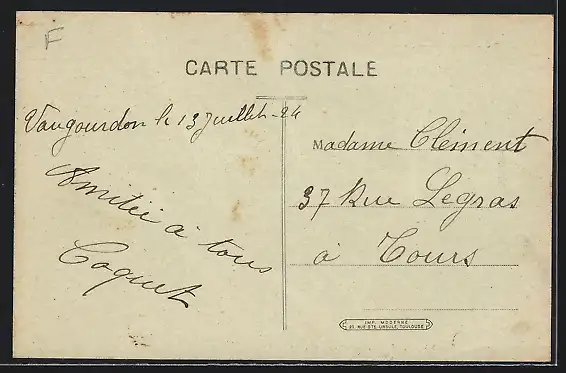 F
CARTE POSTALE
Vaugourdon le 13 Juillet - 24
Amitié à tous
Coquet
Madame Clément
37 Rue Legras
à Tours
IMP. MODERNE
RUE STE URSULE, TOULOUSE